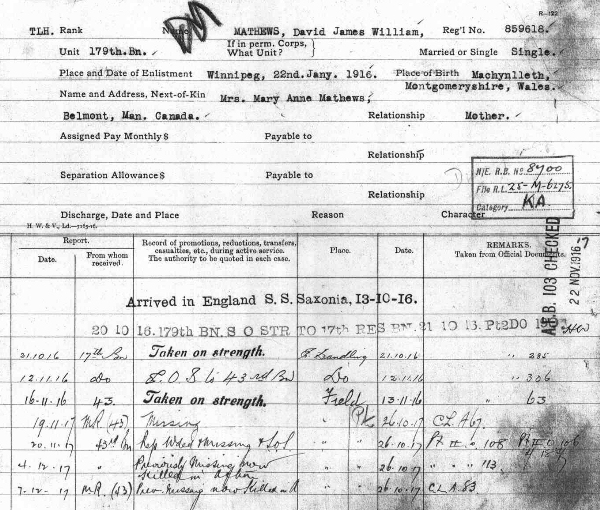 R—122
TLH. Rank Name MATHEWS, David James William, Reg'l No. 859618.
Unit 179th.Bn. If in perm. Corps, What Unit? } Married or Single Single.
Place and Date of Enlistment Winnipeg, 22nd.Jany. 1916. Place of Birth Machynlleth,
Montgomeryshire, Wales.
Name and Address, Next-of-Kin Mrs. Mary Anne Mathews,
Belmont, Man. Canada. Relationship Mother.
Assigned Pay Monthly $ Payable to
Relationship
Separation Allowance $ Payable to
Relationship
N/E. R.B. No. 8400
File R.L. 25-M-6275
Category KA
Discharge, Date and Place Reason Character
H. W. & V., Ld.
Report. Record of promotions, reductions, transfers, casualties, etc., during active service. The authority to be quoted in each case. Place. Date. REMARKS. Taken from Official Documents.
Date. From whom received.
A.F.B. 103 CHECKED
22 NOV. 1916
Arrived in England S.S. Saxonia, 13-10-16.
20 10 16. 179th BN. S O STR TO 17th RES BN. 21 10 13. Pt2DO
21.10.16 17th Bn Taken on strength. 21.10.16 " 285
12.11.16 Do S.O.S to 43rd Bn Do 12.11.16 " 306
16-11-16 43. Taken on strength. Field 13-11-16 " 63
19-11-17 M.R. (43) Missing " " 26-10-17 C.L. A67.
20.11.17 43rd Bn Rep Wded & missing & SOS " " 26-10-17 Pt II O 108
4-12-17 " Previously Missing now killed in Action " " 26-10-17 " " " 113
7-12-17 M.R. (43) Prev. Missing now Killed in A " " 26-10-17 C.L. A.83